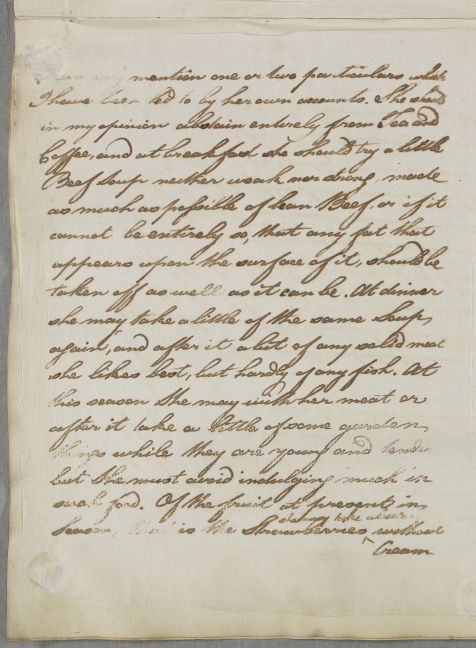 I can only mention one or two particulars which
I have been led to by her own accounts. She should
in my opinion abstain entirely from Tea and
Coffee, and at breakfast she should try a little
Beef soup neither weak nor strong, made
as much as possible of lean Beef or if it
cannot be entirely so, that any fat that
appears upon the surface of it, should be
taken off as well as it can be. At dinner
she may take a little of the same Soup,
again, and after it a bit of any solid meat
she likes best, but hardly of any fish. At
this season she may with her meat or
after it take a little of some garden
things while they are young and tender
but she must avoid indulging much in
such food. Of the fruit at present in
she may take a little
Season, that is the Strawberries ^ without
Cream